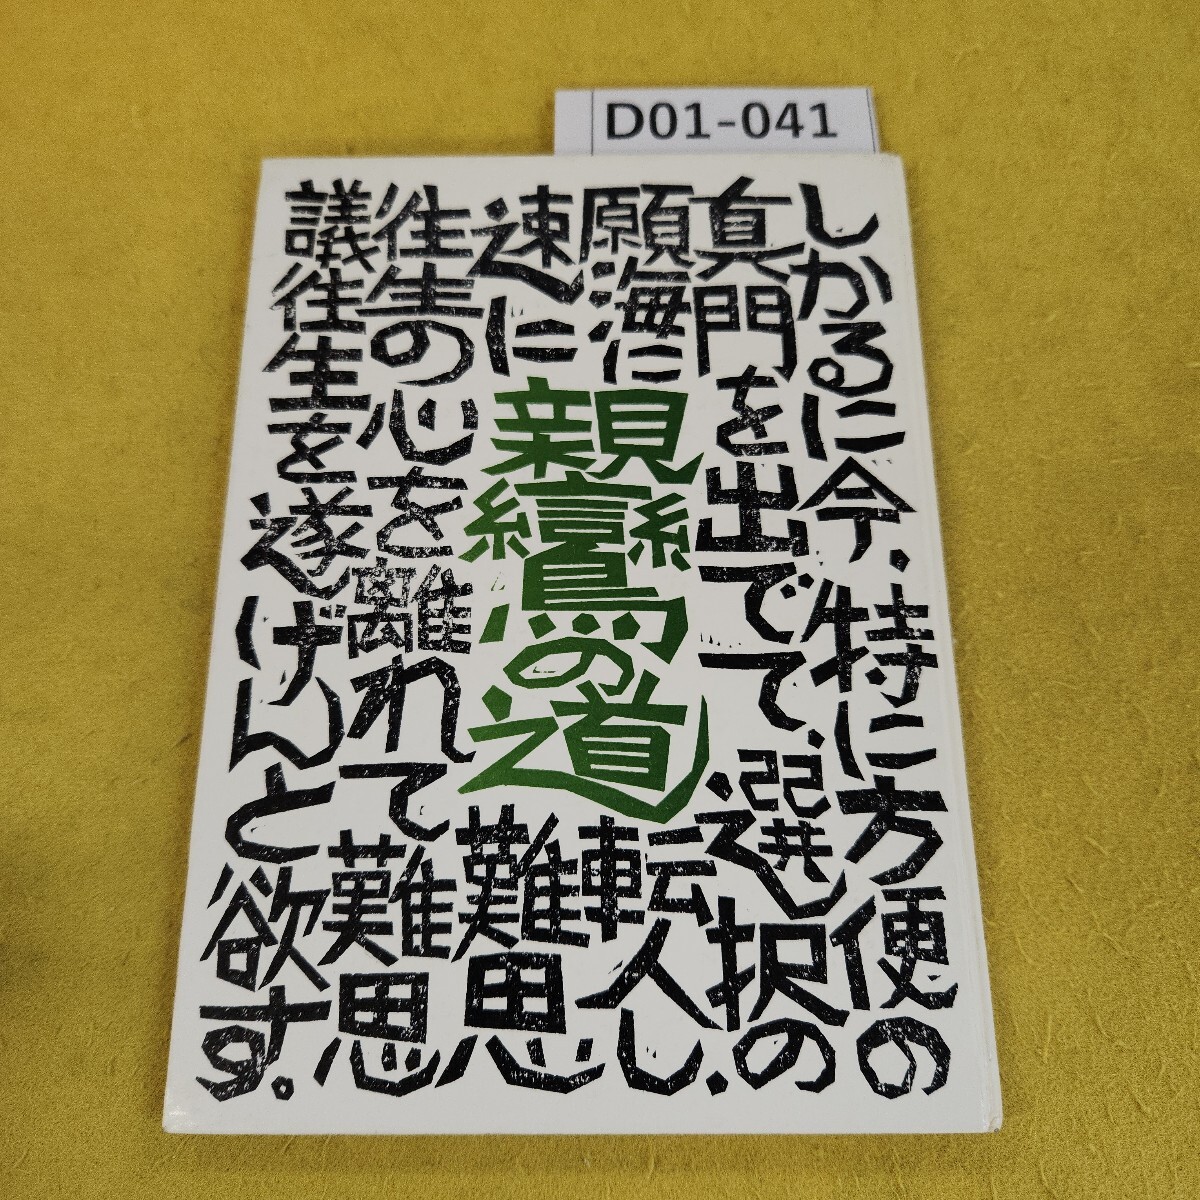 D01-041
しかるに今、特に方便の
真門を出でて、選択の
願海に転入し、
速に難思
往生の心を離れて難思
議往生を遂げんと欲す。
親鸞の道